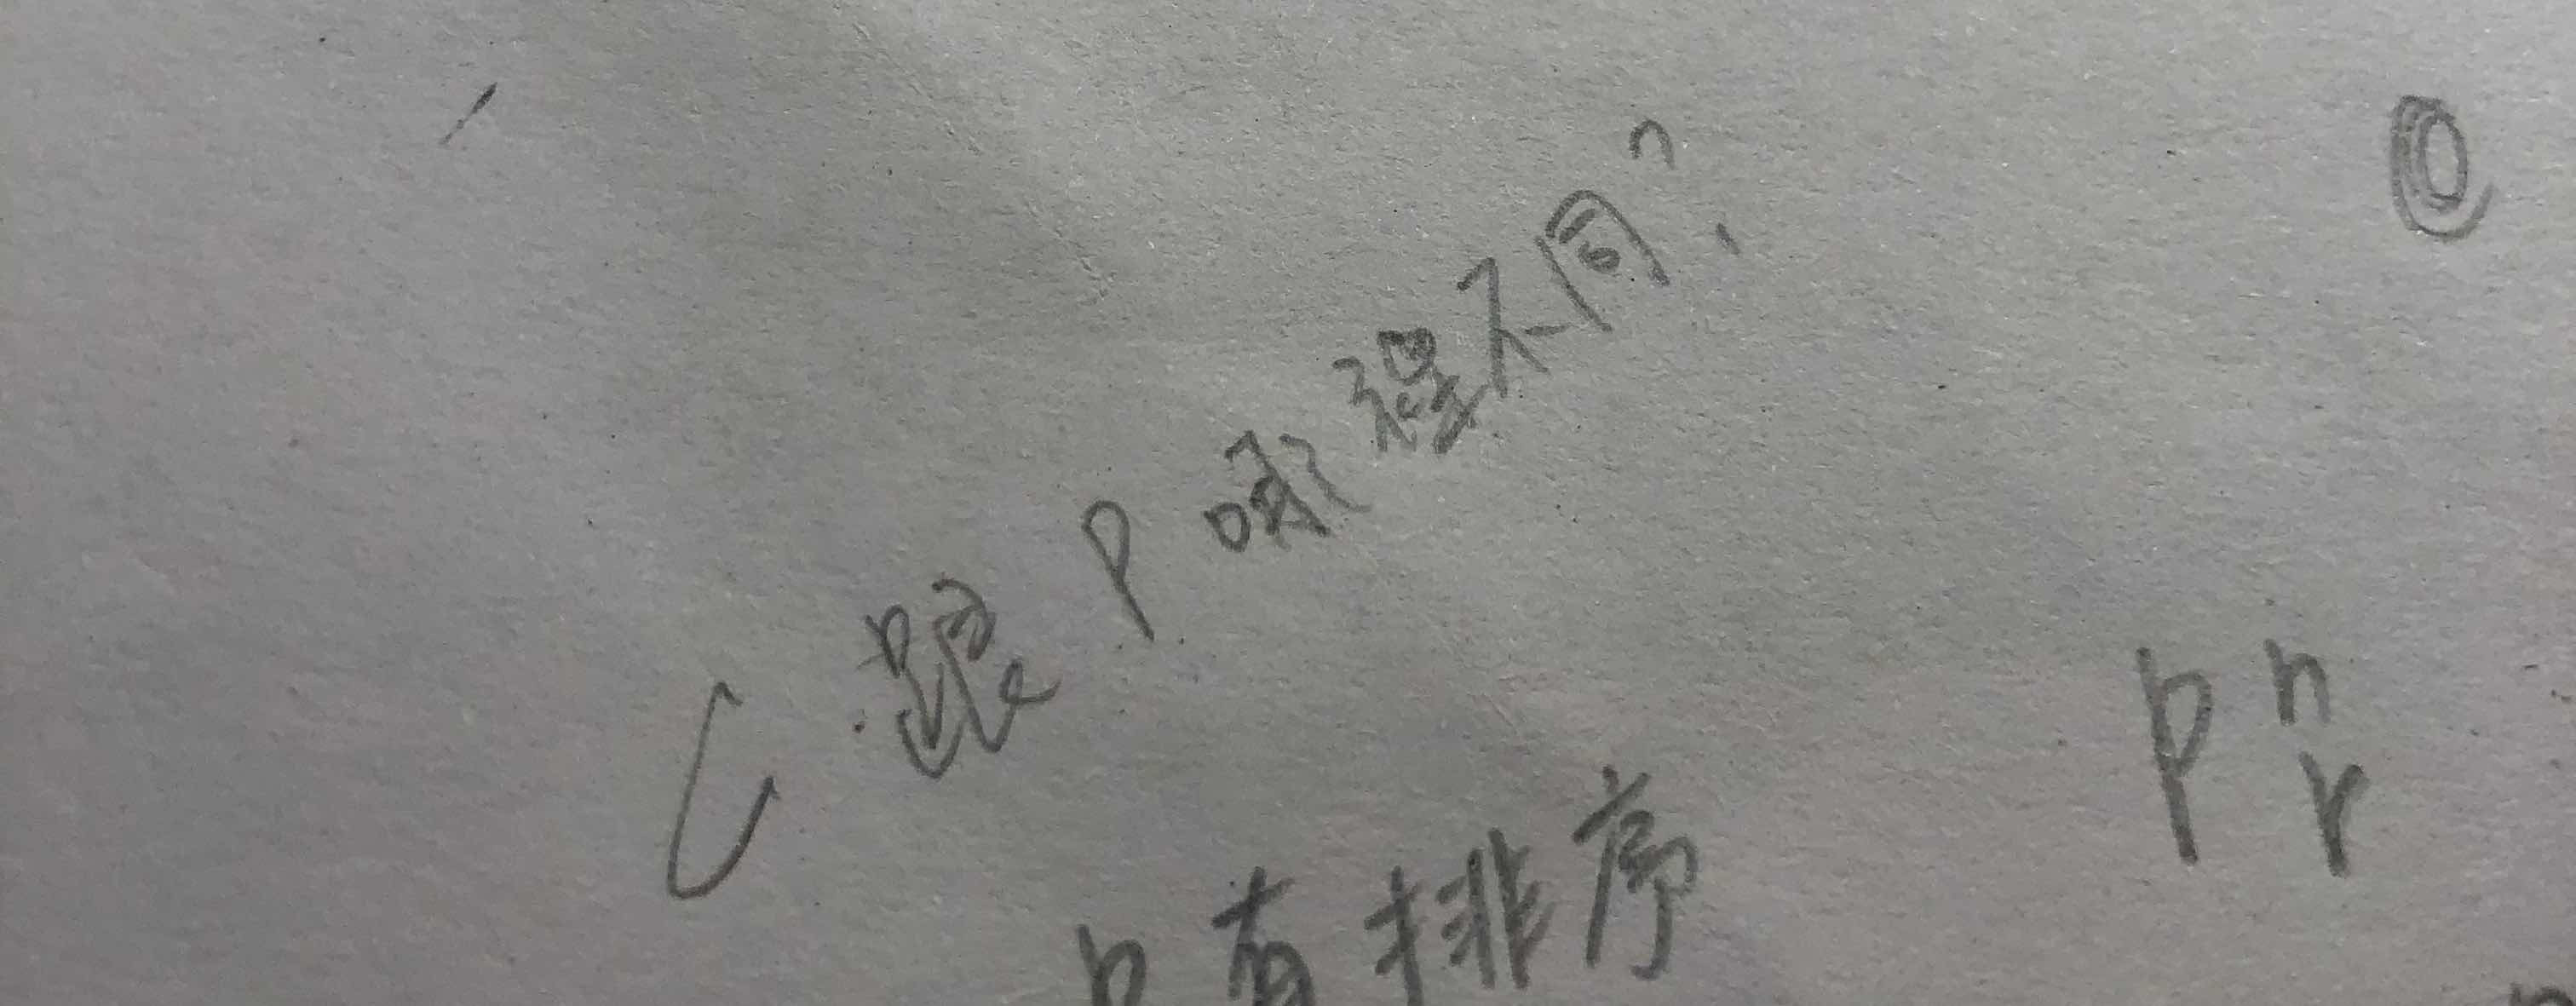 C 跟 P 哪裡不同?
P n r
P有排序